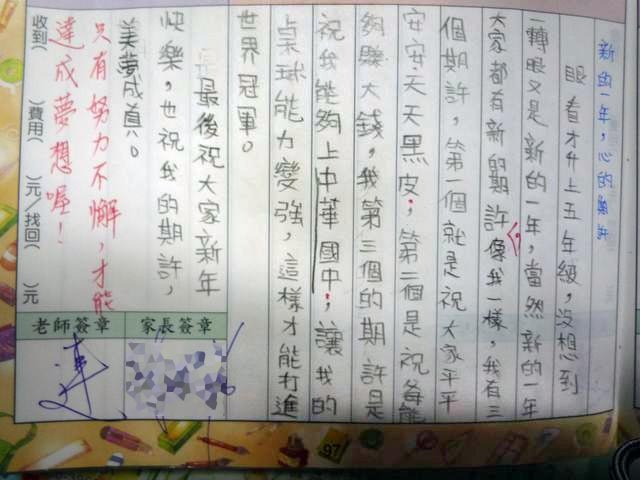 新的一年，心的期許
眼看才升上五年級，沒想到
一轉眼又是新的一年，當然新的一年
大家都有新的期許像我一樣，我有三
個期許，第一個就是祝大家平平
安安天天黑皮；第二個是祝爸能
夠賺大錢，我第三個的期許是
祝我能夠上中華國中；讓我的
桌球能力變強，這樣才能打進
世界冠軍。
最後祝大家新年
快樂，也祝我的期許，
美夢成真。
只有努力不懈，才能
達成夢想喔！
收到（ ）費用（ ）元／找回（ ）元
老師簽章
家長簽章
連
97